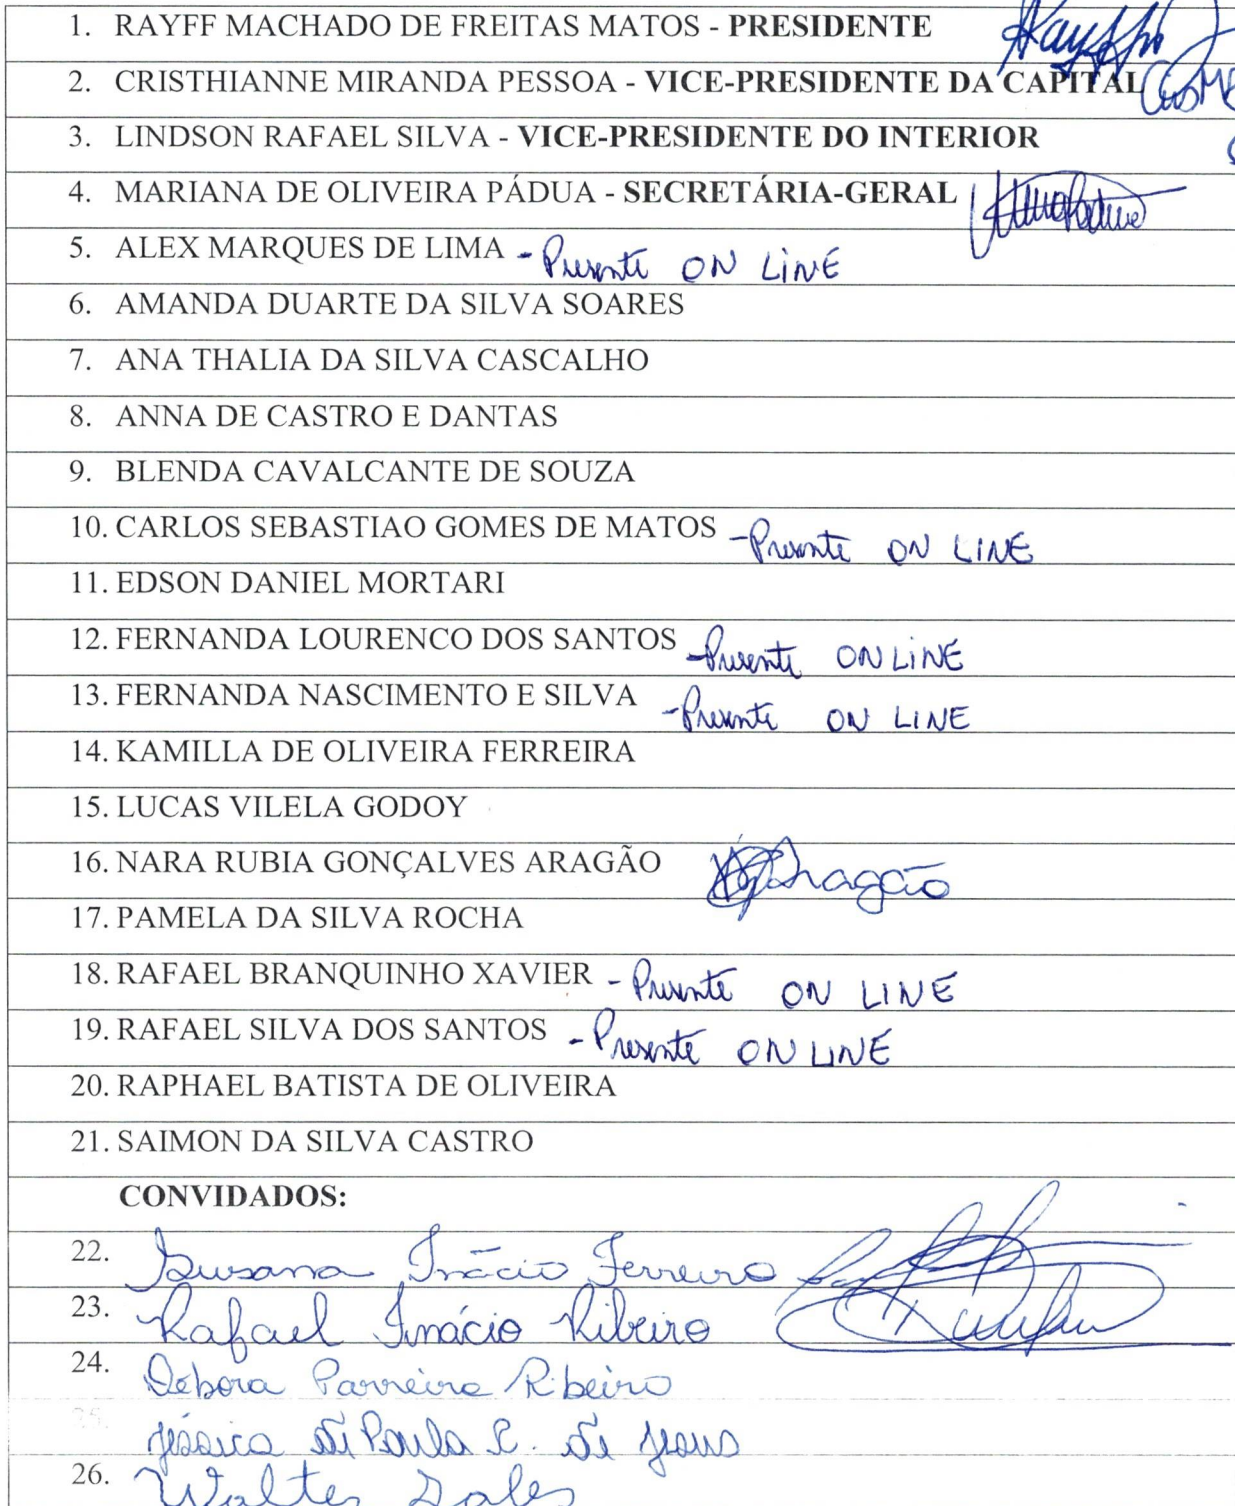 1. RAYFF MACHADO DE FREITAS MATOS - PRESIDENTE
2. CRISTHIANNE MIRANDA PESSOA - VICE-PRESIDENTE DA CAPITAL
3. LINDSON RAFAEL SILVA - VICE-PRESIDENTE DO INTERIOR
4. MARIANA DE OLIVEIRA PÁDUA - SECRETÁRIA-GERAL
5. ALEX MARQUES DE LIMA - Presente ON LINE
6. AMANDA DUARTE DA SILVA SOARES
7. ANA THALIA DA SILVA CASCALHO
8. ANNA DE CASTRO E DANTAS
9. BLENDA CAVALCANTE DE SOUZA
10. CARLOS SEBASTIAO GOMES DE MATOS - Presente ON LINE
11. EDSON DANIEL MORTARI
12. FERNANDA LOURENCO DOS SANTOS - Presente ON LINE
13. FERNANDA NASCIMENTO E SILVA - Presente ON LINE
14. KAMILLA DE OLIVEIRA FERREIRA
15. LUCAS VILELA GODOY
16. NARA RUBIA GONÇALVES ARAGÃO Aragão
17. PAMELA DA SILVA ROCHA
18. RAFAEL BRANQUINHO XAVIER - Presente ON LINE
19. RAFAEL SILVA DOS SANTOS - Presente ON LINE
20. RAPHAEL BATISTA DE OLIVEIRA
21. SAIMON DA SILVA CASTRO
CONVIDADOS:
22. Inácio Ferreira
23. Rafael Inácio Ribeiro
24. Débora Parreira Ribeiro
25. Jéssica de Paula C. de Jesus
26. Walter Sales